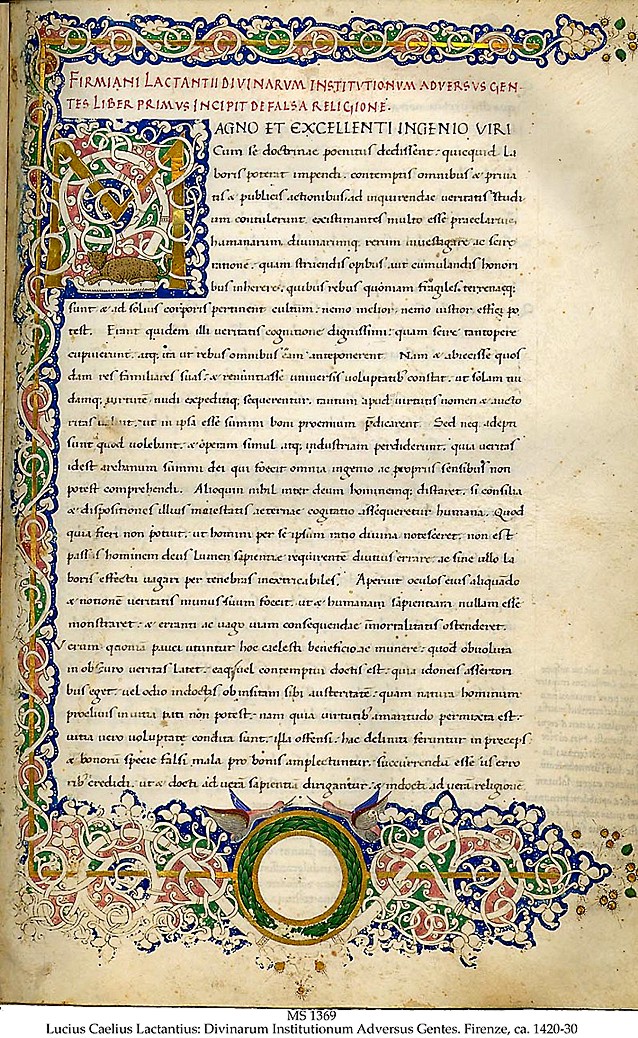 FIRMIANI LACTANTII DIVINARVM INSTITVTIONVM ADVERSVS GEN-
TES LIBER PRIMVS INCIPIT DE FALSA RELIGIONE.
MAGNO ET EXCELLENTI INGENIO VIRI
Cum se doctrinae poenitus dedissent: quicquid La
boris poterat impendi. contemptis omnibus & priua
tis & publicis actionibus. ad inquirendae veritatis studi
um contulerunt. existimantes multo esse praeclarius.
humanarum diuinarumq; rerum inuestigare ac scire
rationē. quam struendis opibus. aut cumulandis honori
bus inherere. quibus rebus quoniam fragiles. terrenaeq;
sunt & ad solius corporis pertinent cultum. nemo melior. nemo iustior effici po
test. Erant quidem illi veritatis cognitione dignissimi: quam scire tantopere
cupiuerunt. atq; ita ut rebus omnibus eam anteponerent. Nam & abiecisse quos
dam res familiares suas: & renuntiasse uniuersis voluptatib' constat. ut solam nu
damq; virtutē. nudi expeditiq; sequerentur. tantum apud virtutis nomen & aucto
ritas valuit. ut in ipsa esse summi boni proemium p̄dicarent. Sed neq. adepti
sunt quod volebant. & operam simul atq; industriam perdiderunt. quia veritas
idest archanum summi dei qui foecit omnia ingenio ac propriis sensibus non
potest comprehendi. Alioquin nihil inter deum hominemq; distaret. si consilia
& dispositiones illius maiestatis aeternae cogitatio assequeretur humana. Quod
quia fieri non potiut. ut homini per se ipsum ratio diuina notesceret. non est
passus hominem deus Lumen sapientiae requirentē diutius errare. ac sine ullo La
boris effectu uagari per tenebras inextricabiles. Aperuit oculos eius aliquādo
& notionē veritatis munus suum foecit. ut & humanam sapientiam nullam esse
monstraret: & erranti ac uago uiam consequendae īmortalitatis ostenderet.
Verum quoniā pauci utuntur hoc caelesti beneficio. ac munere: quod obuoluta
in obscuro veritas Latet. eaq; vel contemptui doctis est: quia idoneis assertori
bus eget. uel odio indoctis ob insitam sibi austeritatē: quam natura hominum
procliuis in uitia pati nōn potest. nam quia uirtutib' amaritudo permixta est.
uitia uero voluptate condita sunt. illa offensi. hac deliniti feruntur in preceps
& bonorū specie falsi mala pro bonis amplectuntur. succurrendū esse iis erro
rib' credidi. ut & docti ad verā sapientiā dirigantur. & indocti ad verā religionē
MS 1369
Lucius Caelius Lactantius: Divinarum Institutionum Adversus Gentes. Firenze, ca. 1420-30